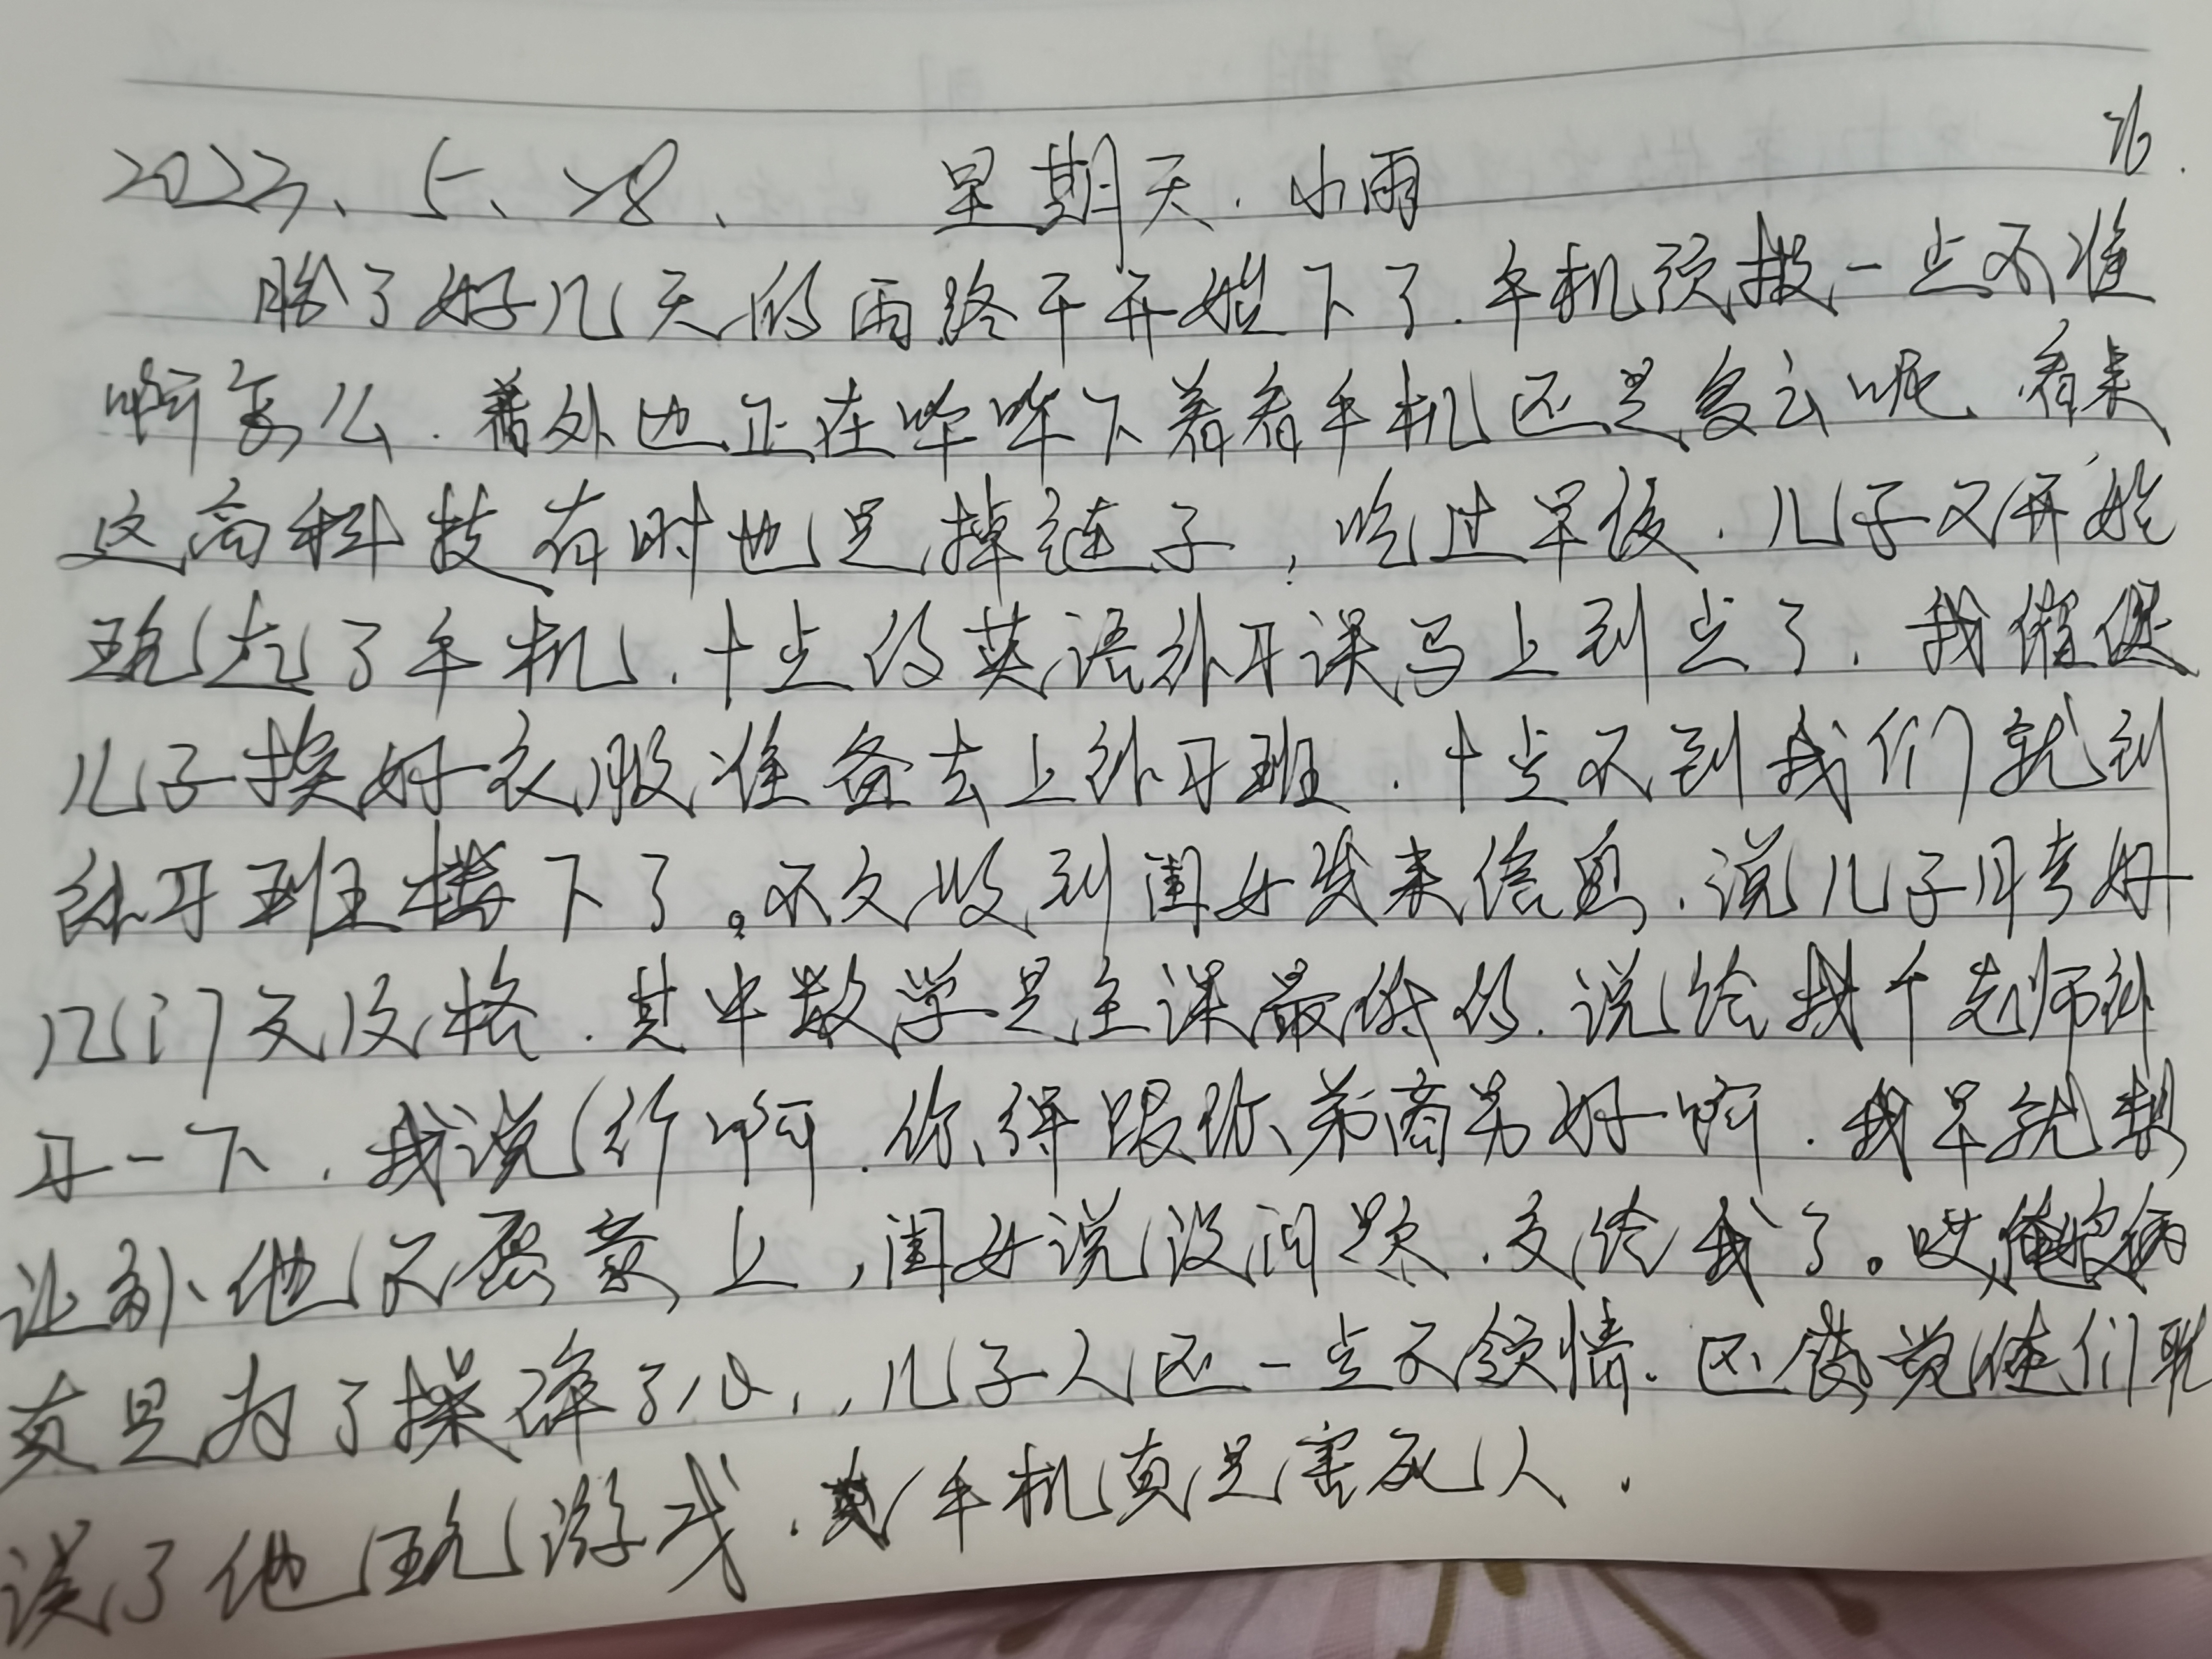 76.
2023、5、28、 星期天. 小雨
盼了好几天的雨终于开始下了.手机预报一点不准
啊怎么.着外边正在哗哗下着看手机还是多云呢、看来
这高科技有时也是掉链子，吃过早饭.儿子又开始
玩起了手机.十点的英语补习课马上到点了.我催促
儿子换好衣服准备去上补习班.十点不到我们就到
补习班楼下了。不久收到闺女发来信息.说儿子月考好
几门不及格.其中数学是主课最低的.说给找个老师补
习一下.我说行啊.你得跟你弟商量好啊.我早就想
让补他不愿意上，闺女说没问题.交给我了。哎,俺娘俩
真是为了操碎了心,,儿子人还一点不领情.还感觉俺们耽
误了他玩游戏.手机真是害死人.